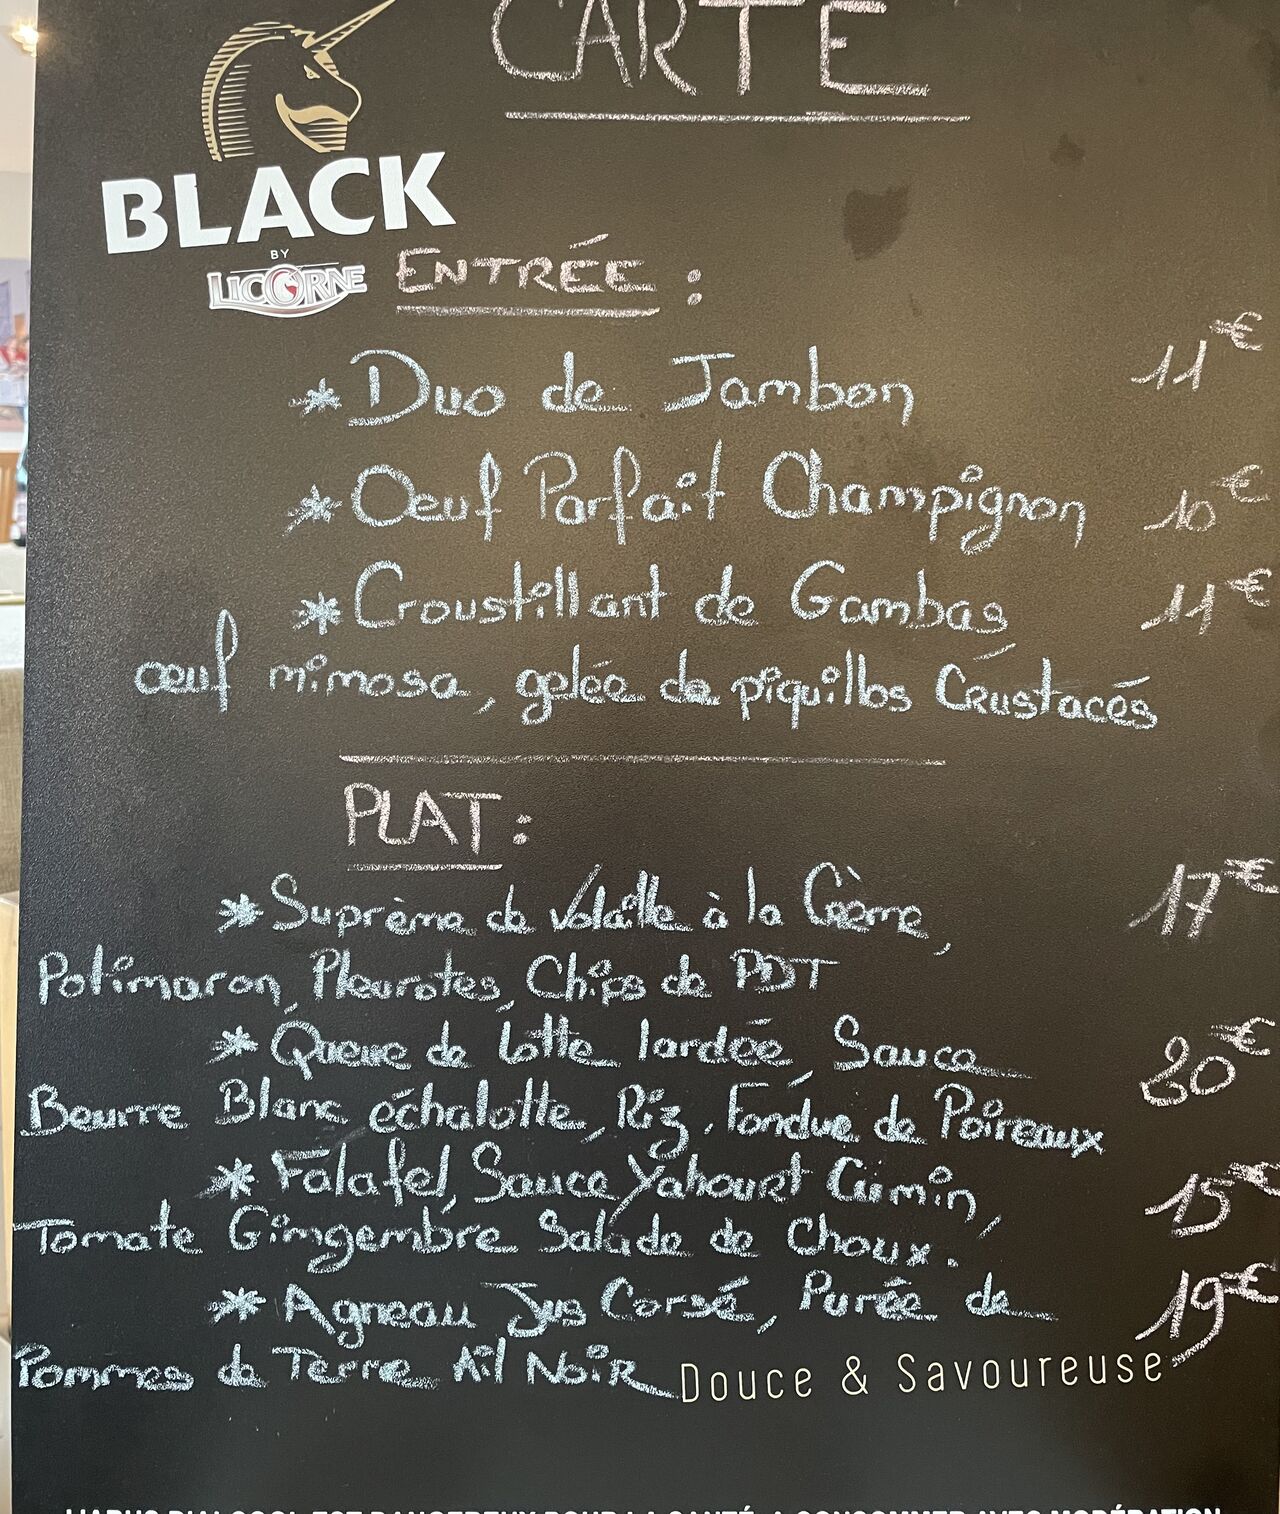 CARTE
BLACK
BY
LICORNE
ENTRÉE :
* Duo de Jambon 11€
* Oeuf Parfait Champignon 10€
* Croustillant de Gambas 11€
œuf mimosa, gelée de piquillos Crustacés
PLAT :
* Suprème de Volaille à la Crème, 17€
Potimaron, Pleurotes, Chips de PDT
* Queue de lotte lardée, Sauce 20€
Beurre Blanc échalotte, Riz, Fondue de Poireaux
* Falafel, Sauce Yahourt Cumin, 15€
Tomate Gimgembre Salade de Choux.
* Agneau Jus Corsé, Purée de 19€
Pommes de Terre Ail Noir
Douce & Savoureuse
L'ABUS D'ALCOOL EST DANGEREUX POUR LA SANTÉ, A CONSOMMER AVEC MODÉRATION